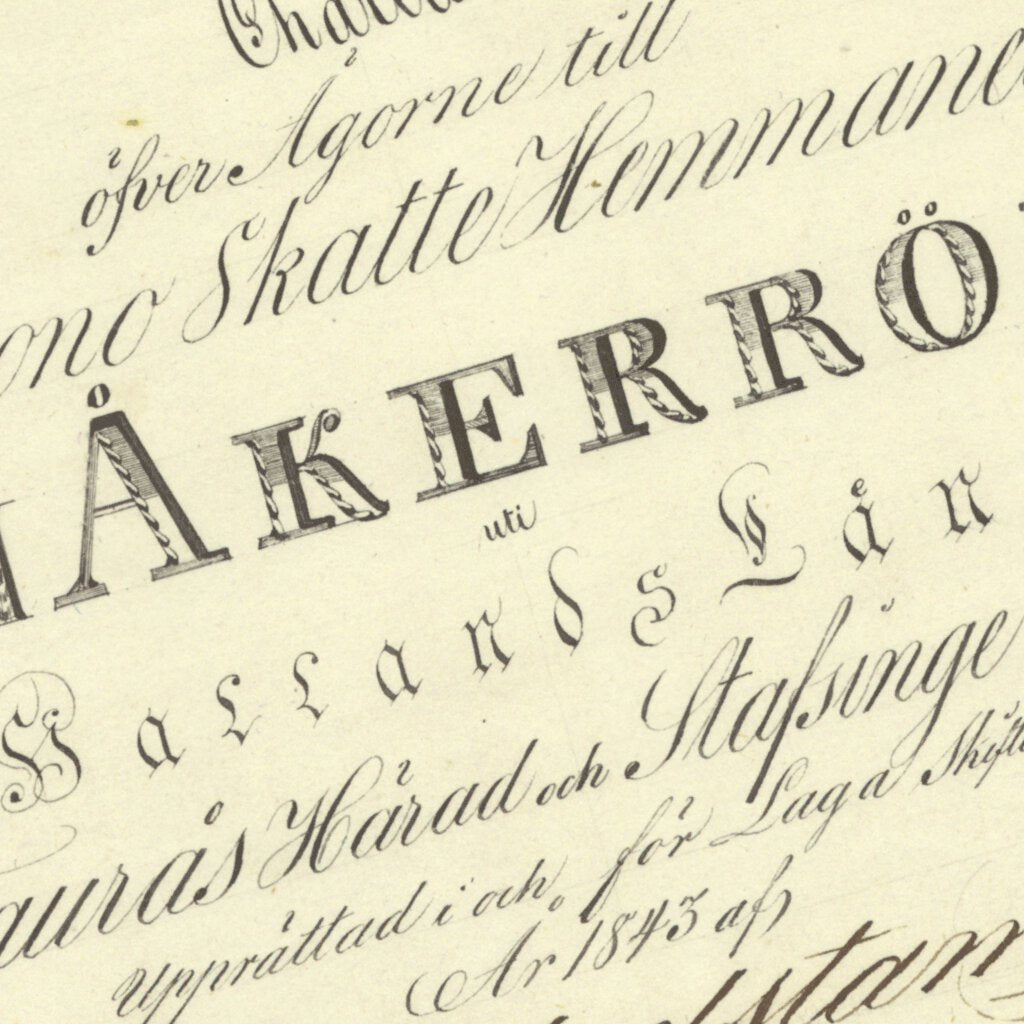 öfver Ägorne till
Skatte Hemmanet
ÅKERRÖ
uti
Hallands Län
Årstads Härad och Stafsinge
Upprättad i och för Laga Skifte
År 1843 af